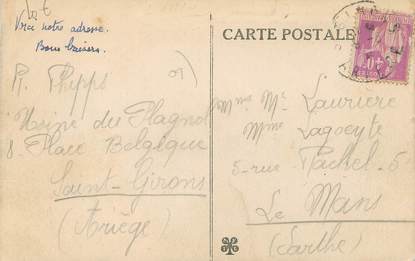 Voici notre adresse.
Bons baisers.
R. Phipps
Usine du Plagnol
8. Place Belgique
Saint-Girons
(Ariège)
CARTE POSTALE
Lauriere
Mme Lagoeyte
5-rue Rachel-5
Le Mans
(Sarthe)